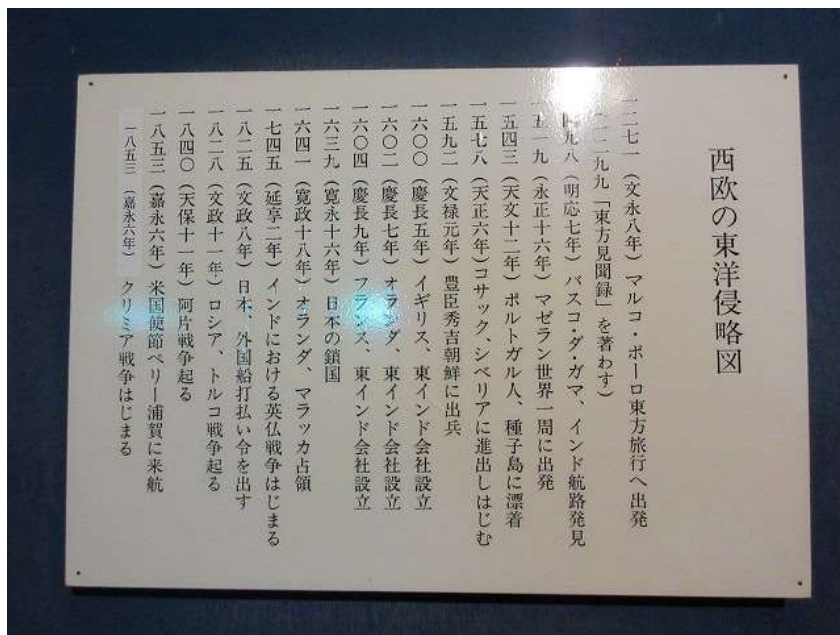 西欧の東洋侵略図
一二七一（文永八年）マルコ・ポーロ東方旅行へ出発
（一二九九「東方見聞録」を著わす）
一四九八（明応七年）バスコ・ダ・ガマ、インド航路発見
一五一九（永正十六年）マゼラン世界一周に出発
一五四三（天文十二年）ポルトガル人、種子島に漂着
一五七八（天正六年）コサック、シベリアに進出しはじむ
一五九二（文禄元年）豊臣秀吉朝鮮に出兵
一六〇〇（慶長五年）イギリス、東インド会社設立
一六〇二（慶長七年）オランダ、東インド会社設立
一六〇四（慶長九年）フランス、東インド会社設立
一六三九（寛永十六年）日本の鎖国
一六四一（寛政十八年）オランダ、マラッカ占領
一七四五（延享二年）インドにおける英仏戦争はじまる
一八二五（文政八年）日本、外国船打払い令を出す
一八二八（文政十一年）ロシア、トルコ戦争起る
一八四〇（天保十一年）阿片戦争起る
一八五三（嘉永六年）米国使節ペリー浦賀に来航
一八五三（嘉永六年）クリミア戦争はじまる